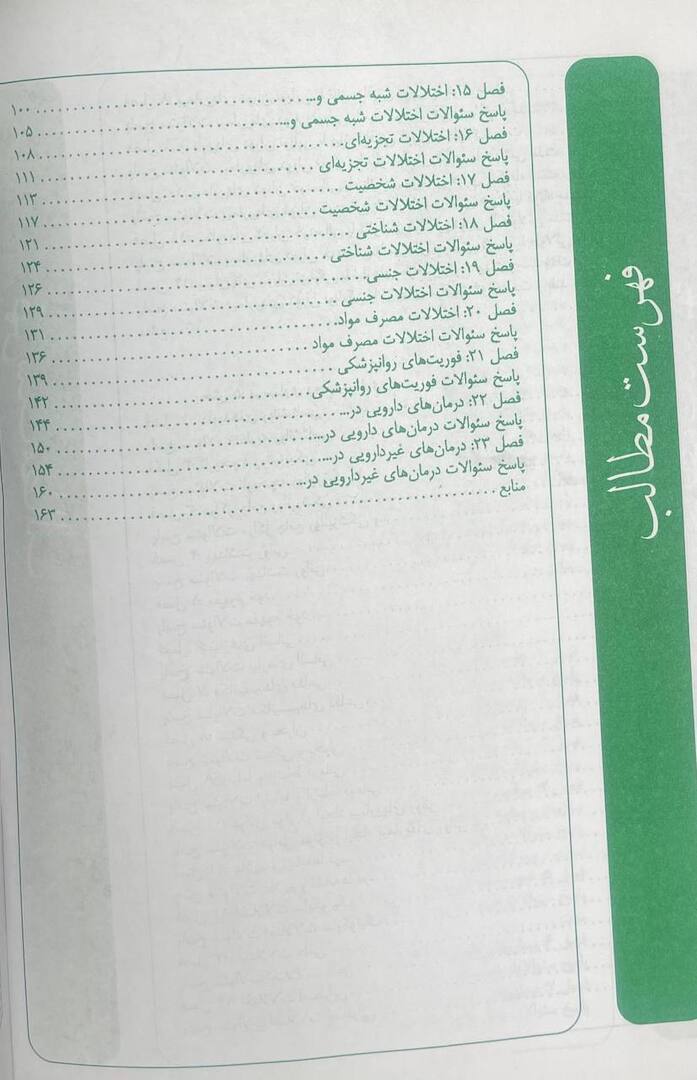 فهرست مطالب
فصل ۱۵: اختلالات شبه جسمی و... ۱۰۰
پاسخ سئوالات اختلالات شبه جسمی و... ۱۰۵
فصل ۱۶: اختلالات تجزیه‌ای ۱۰۸
پاسخ سئوالات اختلالات تجزیه‌ای ۱۱۱
فصل ۱۷: اختلالات شخصیت ۱۱۳
پاسخ سئوالات اختلالات شخصیت ۱۱۷
فصل ۱۸: اختلالات شناختی ۱۲۱
پاسخ سئوالات اختلالات شناختی ۱۲۴
فصل ۱۹: اختلالات جنسی ۱۲۶
پاسخ سئوالات اختلالات جنسی ۱۲۹
فصل ۲۰: اختلالات مصرف مواد ۱۳۱
پاسخ سئوالات اختلالات مصرف مواد ۱۳۶
فصل ۲۱: فوریت‌های روانپزشکی ۱۳۹
پاسخ سئوالات فوریت‌های روانپزشکی ۱۴۲
فصل ۲۲: درمان‌های دارویی در... ۱۴۴
پاسخ سئوالات درمان‌های دارویی در... ۱۵۰
فصل ۲۳: درمان‌های غیردارویی در... ۱۵۴
پاسخ سئوالات درمان‌های غیردارویی در... ۱۶۰
منابع ۱۶۳